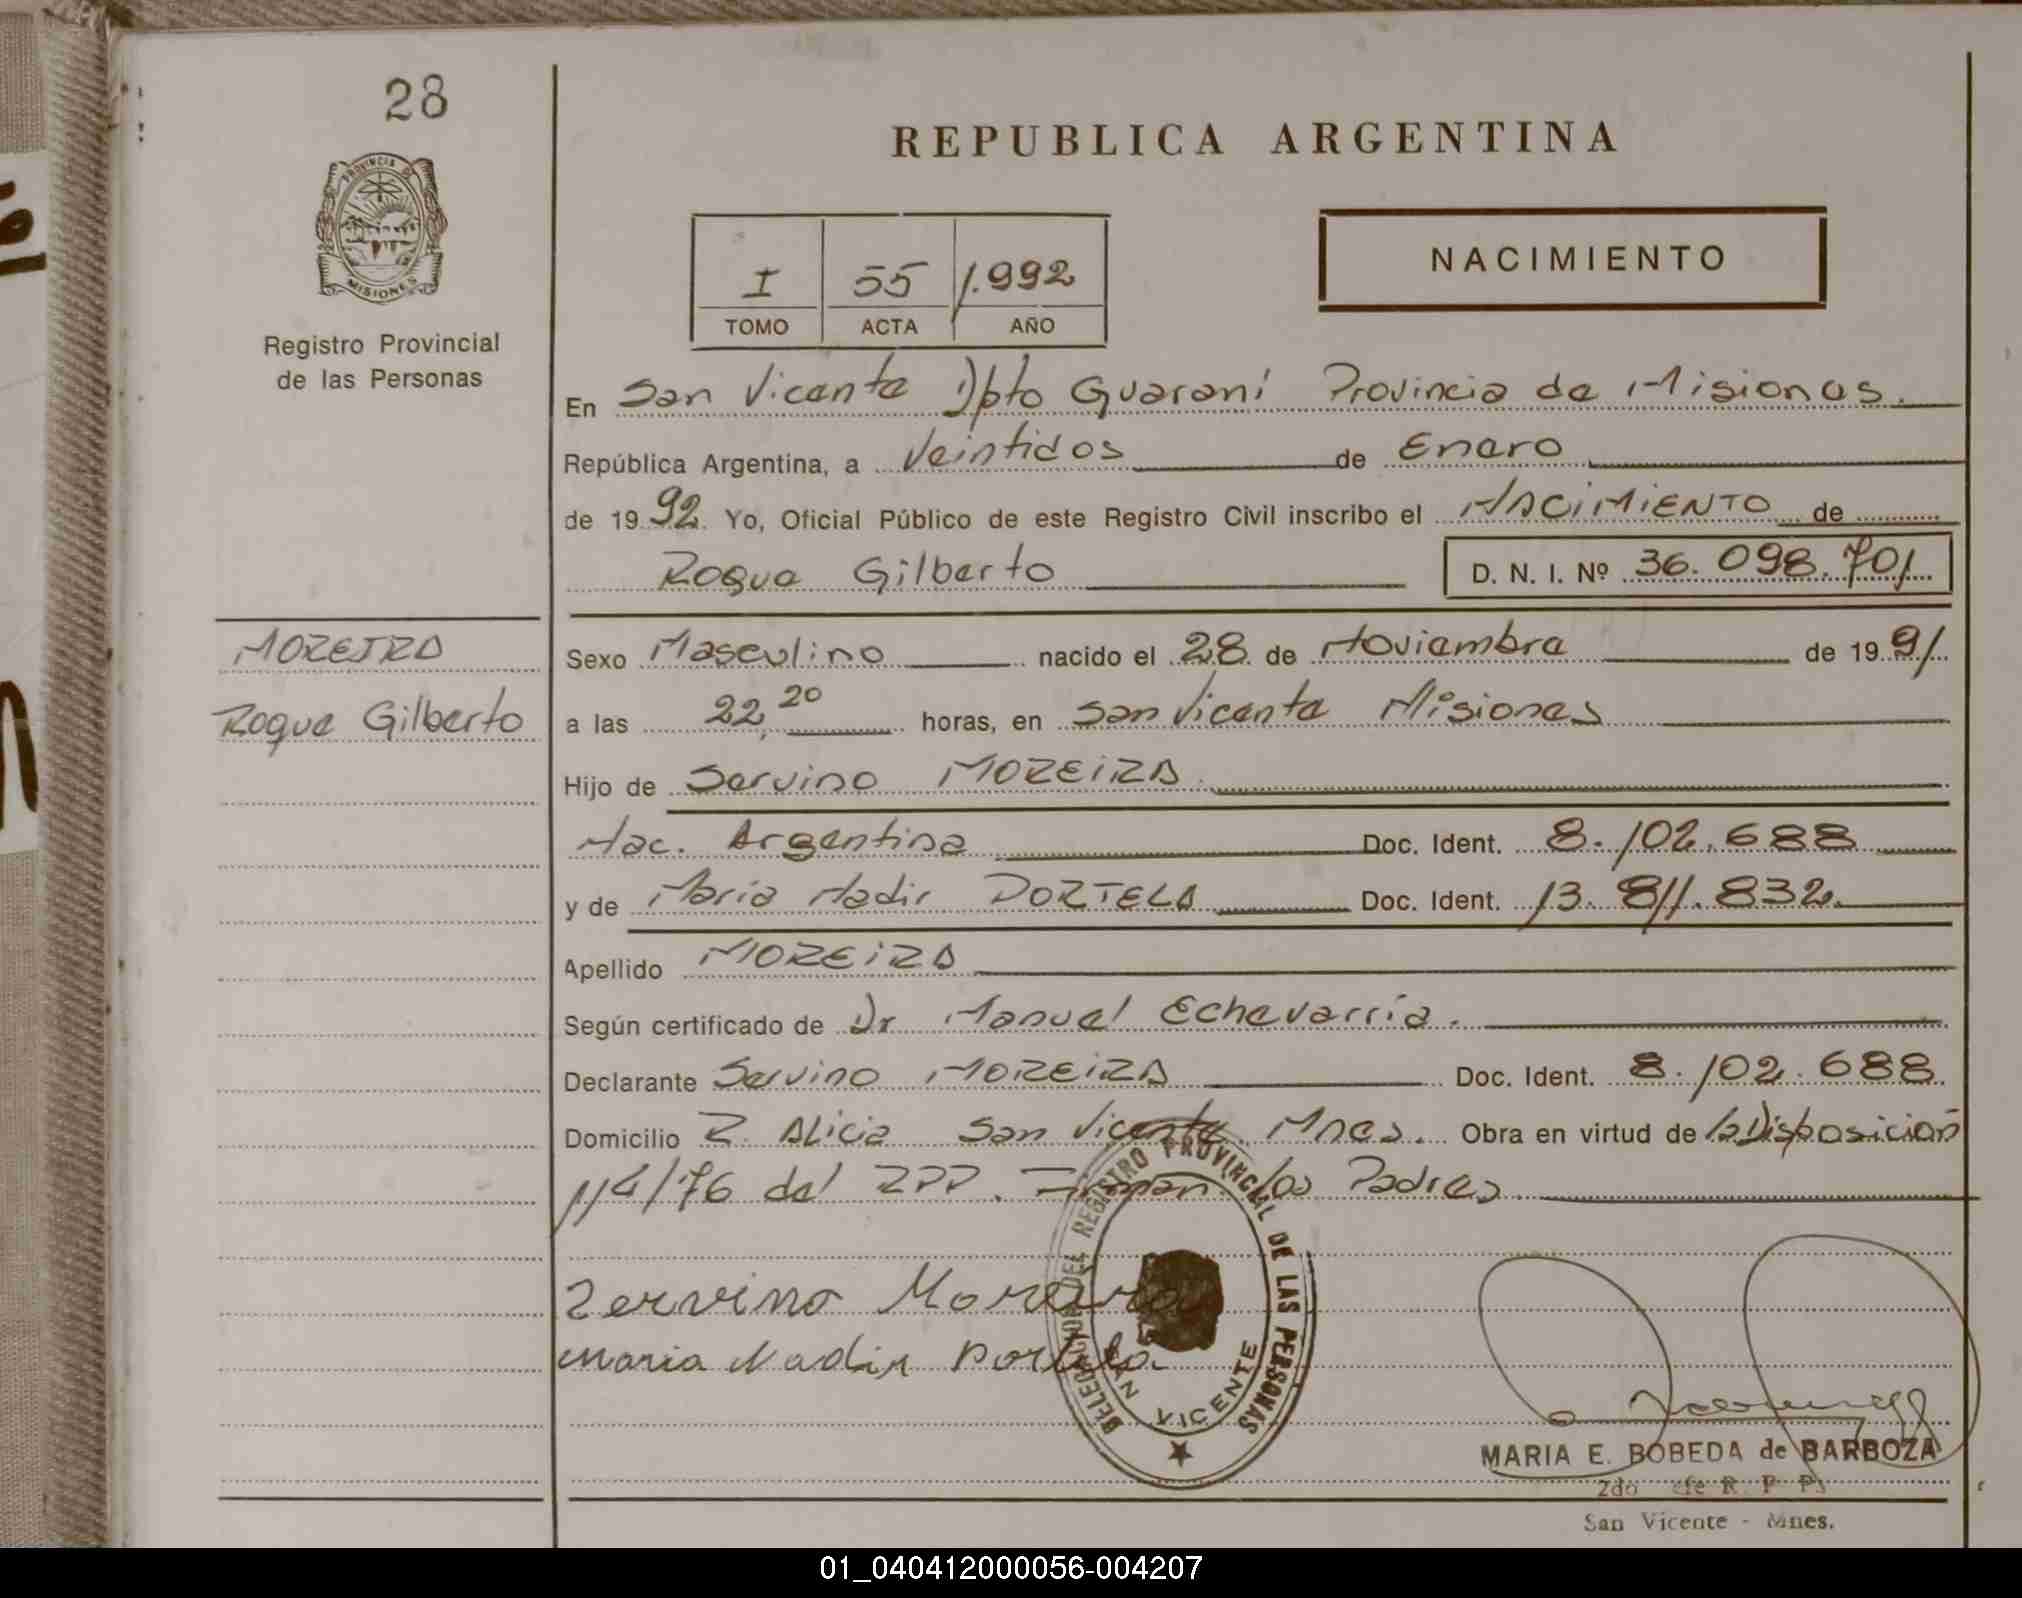 28
PROVINCIA DE
MISIONES
Registro Provincial
de las Personas
MOREIRA
Roque Gilberto
REPUBLICA ARGENTINA
I 55 1.992
TOMO ACTA AÑO
NACIMIENTO
En San Vicente Dpto Guaraní Provincia de Misiones.
República Argentina, a Veintidos de Enero
de 1992. Yo, Oficial Público de este Registro Civil inscribo el NACIMIENTO de
Roque Gilberto D. N. I. Nº 36.098.701
Sexo Masculino nacido el 28 de Noviembre de 1991
a las 22,20 horas, en San Vicente Misiones
Hijo de Servino MOREIRA
Nac. Argentina Doc. Ident. 8.102.688
y de María Nadir PORTELA Doc. Ident. 13.811.832
Apellido MOREIRA
Según certificado de Dr Manuel Echevarría.
Declarante Servino MOREIRA Doc. Ident. 8.102.688
Domicilio P. Alicia San Vicente Mnes. Obra en virtud de la Disposición
114/76 del RPP. Firman los Padres
Zervino Moreira
Maria Nadir Portela
DELEGACION DEL REGISTRO PROVINCIAL DE LAS PERSONAS
SAN VICENTE
MARIA E. BOBEDA de BARBOZA
2do R. P. P.
San Vicente - Mnes.
01_040412000056-004207